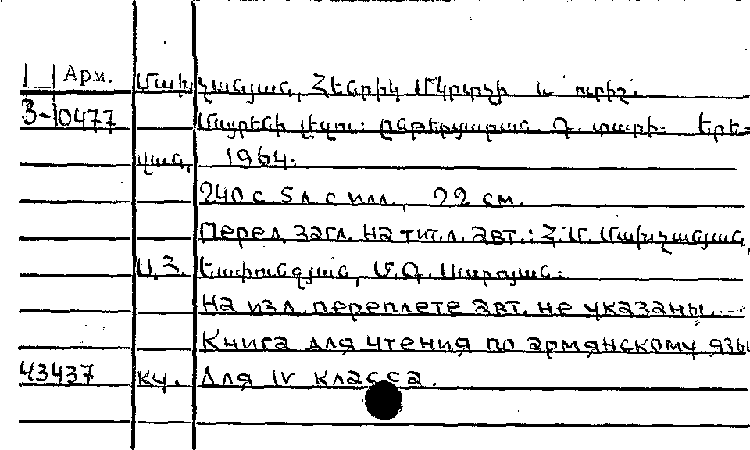 Арм. Մախչանյան, Հենրիկ Մկրտչի և ուրիշ.
3-10477 Մայրենի լեզու: ընթերցարան 4. տարի. Երե-
վան, 1964.
240 с 5 л с илл., 22 см.
Перед загл. на тит. л. авт.: Հ.Մ. Մախչանյան,
На изл. переплете авт. не указаны.
Книга для чтения по армянскому язы
43437 кч. Для IV класса.